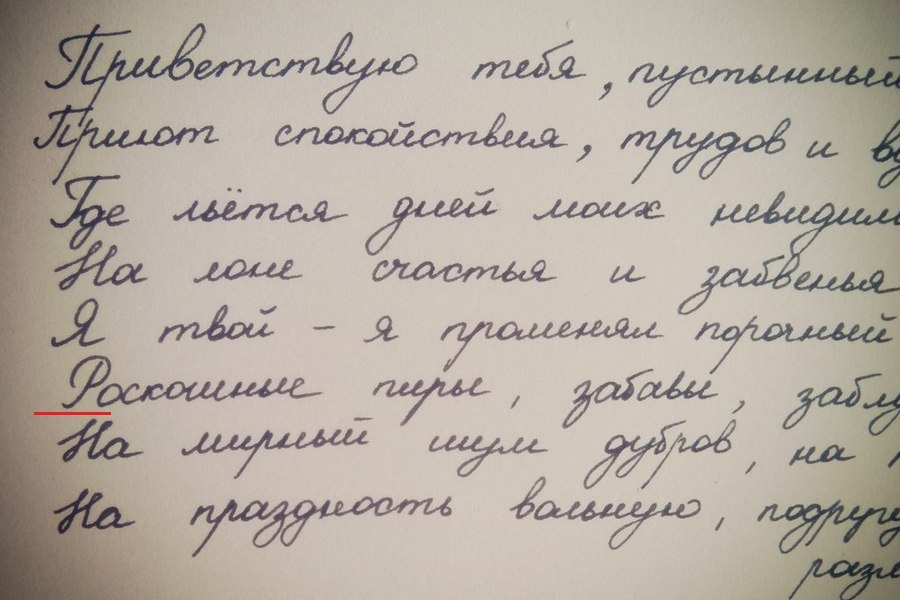 Приветствую тебя, пустынный
Приют спокойствия, трудов и вд
Где льётся дней моих невидим
На лоне счастья и забвенья
Я твой – я променял порочный
Роскошные пиры, забавы, заблу
На мирный шум дубров, на
На праздность вольную, подругу
разм